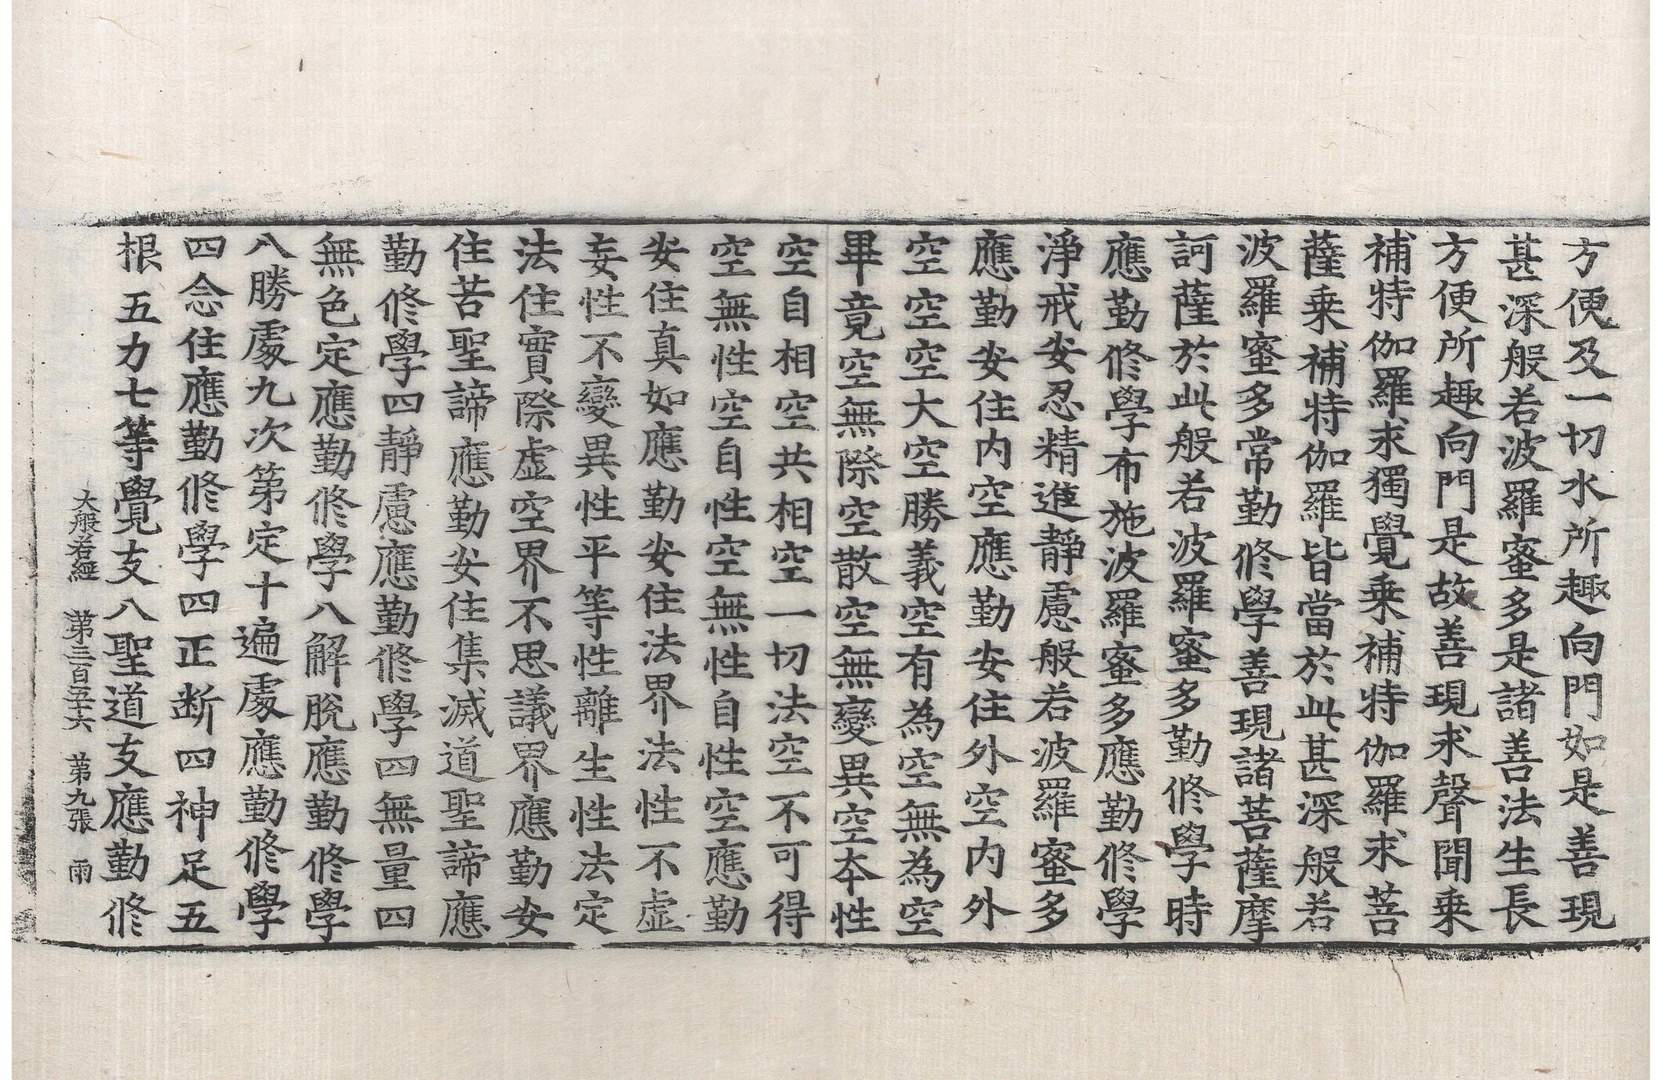 方便及一切水所趣向門如是善現
甚深般若波羅蜜多是諸善法生長
方便所趣向門是故善現求聲聞乘
補特伽羅求獨覺乘補特伽羅求菩
薩乘補特伽羅皆當於此甚深般若
波羅蜜多常勤修學善現諸菩薩摩
訶薩於此般若波羅蜜多勤修學時
應勤修學布施波羅蜜多應勤修學
淨戒安忍精進靜慮般若波羅蜜多
應勤安住內空應勤安住外空內外
空空空大空勝義空有為空無為空
畢竟空無際空散空無變異空本性
空自相空共相空一切法空不可得
空無性空自性空無性自性空應勤
安住真如應勤安住法界法性不虛
妄性不變異性平等性離生性法定
法住實際虛空界不思議界應勤安
住苦聖諦應勤安住集滅道聖諦應
勤修學四靜慮應勤修學四無量四
無色定應勤修學八解脫應勤修學
八勝處九次第定十遍處應勤修學
四念住應勤修學四正斷四神足五
根五力七等覺支八聖道支應勤修
大般若經 第三百五十六 第九張 雨